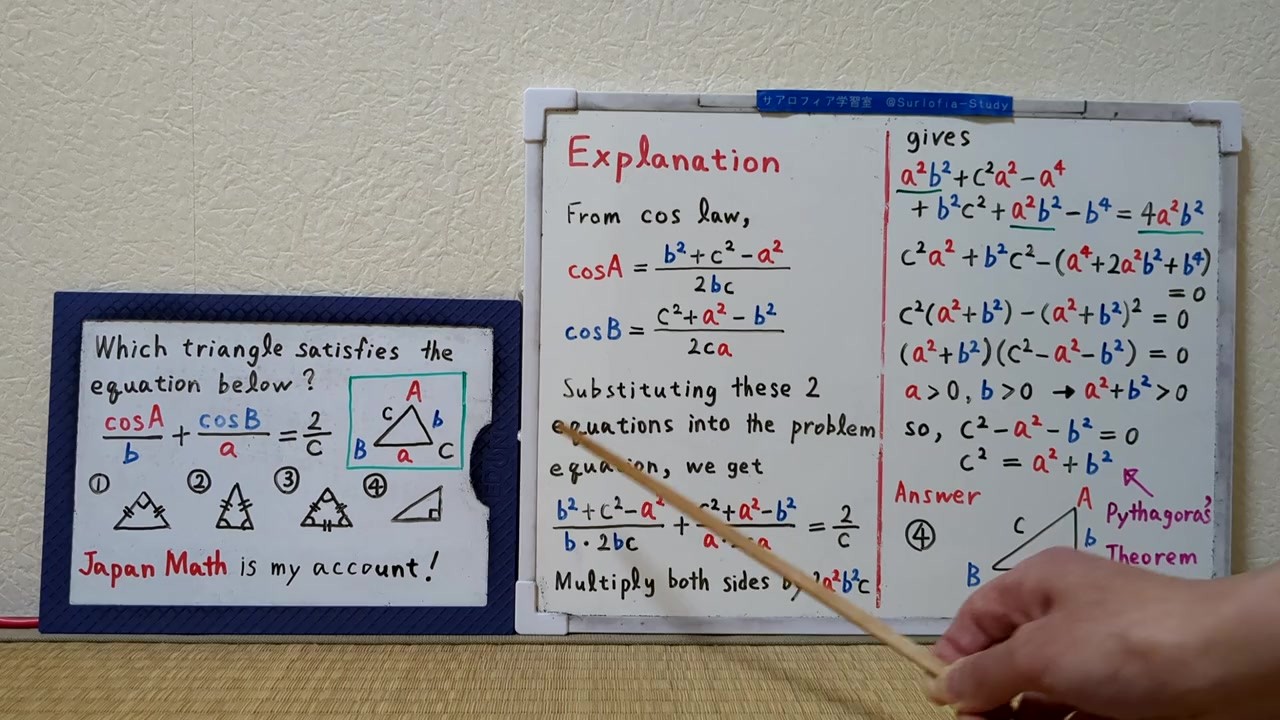 サアロフィア学習室 @Surlofia-Study
Which triangle satisfies the
equation below?
cosA/b + cosB/a = 2/c
A
c b
B a C
① ② ③ ④
Japan Math is my account!
Explanation
From cos law,
cosA = b²+c²-a²/2bc
cosB = c²+a²-b²/2ca
Substituting these 2
equations into the problem
equation, we get
b²+c²-a²/b·2bc + c²+a²-b²/a = 2/c
Multiply both sides by 2a²b²c
gives
a²b²+c²a²-a⁴
+b²c²+a²b²-b⁴=4a²b²
c²a²+b²c²-(a⁴+2a²b²+b⁴)
=0
c²(a²+b²)-(a²+b²)²=0
(a²+b²)(c²-a²-b²)=0
a>0, b>0 → a²+b²>0
so, c²-a²-b²=0
c² = a²+b²
Answer
④
A
c
b
B
Pythagoras'
Theorem